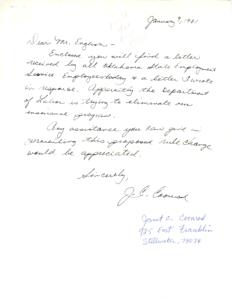 January 9, 1981
Dear Mr. English -
Enclosed you will find a letter
received by all Oklahoma State Employment
Service Employees today & a letter I wrote
in response. Apparently the Department
of Labor is trying to eliminate our
insurance program.
Any assistance you can give in
this proposed rule change
would be appreciated.
Sincerely,
J. C. Conrad
Janet C. Conrad
East Franklin
Stillwater, 74074